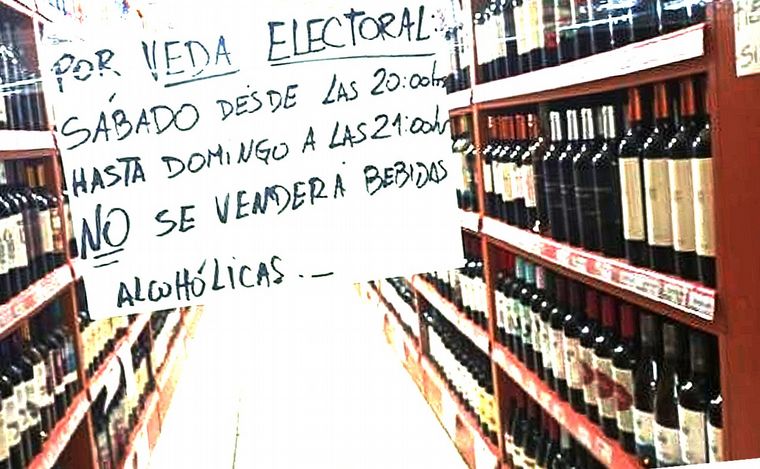 POR VEDA ELECTORAL
SÁBADO DESDE LAS 20:00hs
HASTA DOMINGO A LAS 21:00hs
NO SE VENDERÁ BEBIDAS
ALCOHÓLICAS._